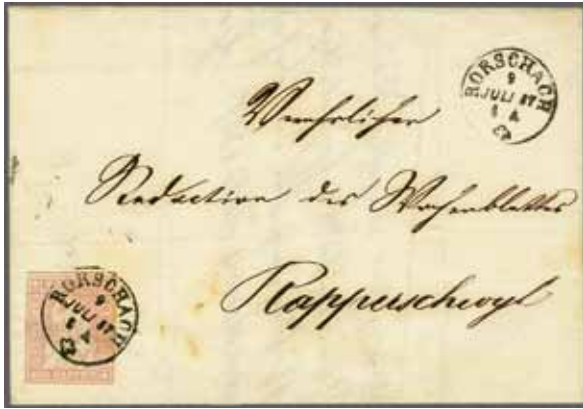 RORSCHACH
9
JULI 57
A
Verehrlicher
Redaction des Wochenblattes
Rapperschwyl
RORSCHACH
9
JULI 57
A